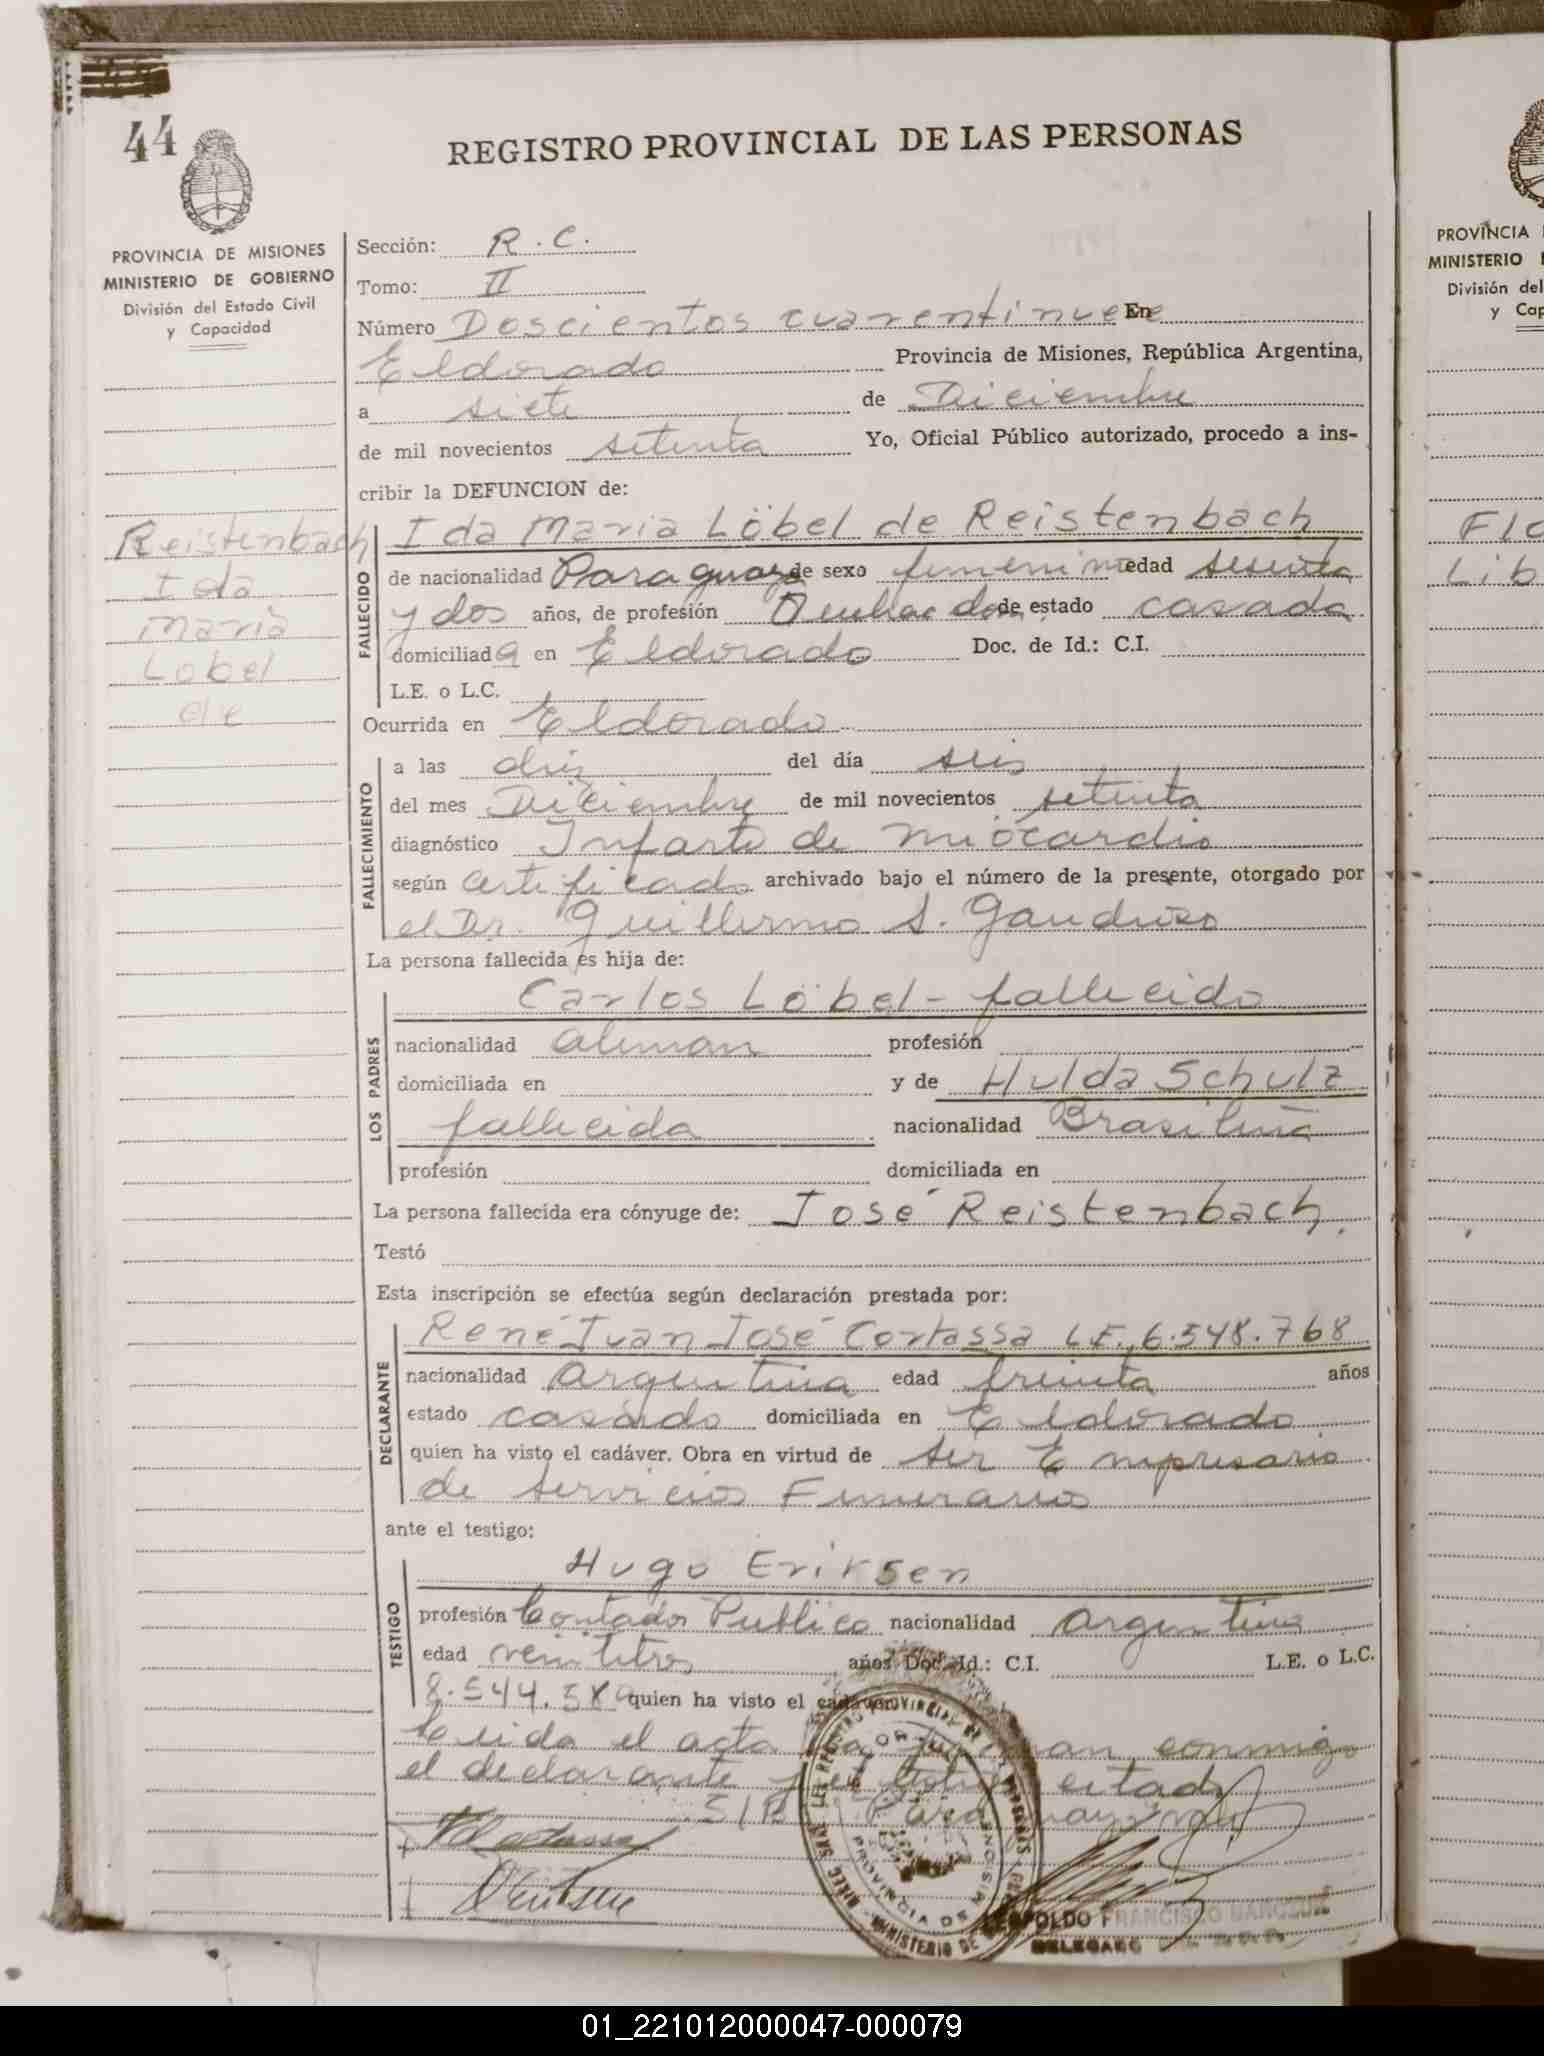 44
REGISTRO PROVINCIAL DE LAS PERSONAS
PROVINCIA DE MISIONES
MINISTERIO DE GOBIERNO
División del Estado Civil
y Capacidad
Reistenbach
Ida
Maria
Löbel
de
Sección: R. C.
Tomo: II
Número Doscientos cuarentinueve En
Eldorado Provincia de Misiones, República Argentina,
a siete de Diciembre
de mil novecientos setenta Yo, Oficial Público autorizado, procedo a ins-
cribir la DEFUNCION de:
FALLECIDO
Ida Maria Löbel de Reistenbach
de nacionalidad Paraguaya de sexo femenino edad sesenta
y dos años, de profesión de estado casada
domiciliada en Eldorado Doc. de Id.: C.I.
L.E. o L.C.
Ocurrida en Eldorado
FALLECIMIENTO
a las diez del día seis
del mes Diciembre de mil novecientos setenta
diagnóstico Infarto de miocardio
según certificado archivado bajo el número de la presente, otorgado por
el Dr. Guillermo S.
La persona fallecida es hija de:
LOS PADRES
Carlos Löbel - fallecido
nacionalidad aleman profesión
domiciliada en y de Hulda Schulz
fallecida nacionalidad Brasileña
profesión domiciliada en
La persona fallecida era cónyuge de: José Reistenbach.
Testó
Esta inscripción se efectúa según declaración prestada por:
DECLARANTE
René Ivan José Cortassa L.E. 6.548.768
nacionalidad argentina edad treinta años
estado casado domiciliada en Eldorado
quien ha visto el cadáver. Obra en virtud de ser Empresario
de Servicios Funerarios
ante el testigo:
TESTIGO
Hugo Eriksen
profesión Contador Publico nacionalidad argentina
edad veintitres años Doc. Id.: C.I. L.E. o L.C.
8.544. quien ha visto el cadáver.
Leida el acta la firman conmigo
el declarante y el testigo citado
S/B
PROVINCIA DE MISIONES
LEOPOLDO FRANCISCO
DELEGADO
PROVINCIA
MINISTERIO
División del
y Cap
Flo
Lib
01_221012000047-000079